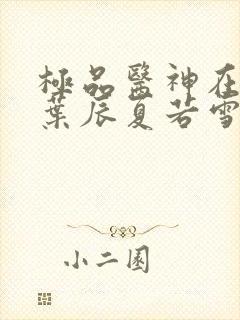 極品醫神在
葉辰夏若雪
小二園